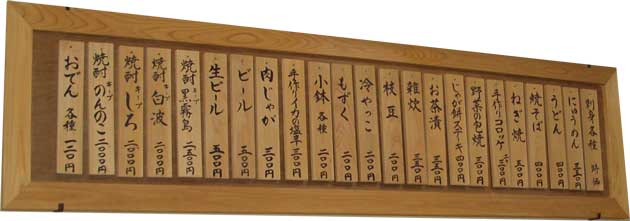 刺身各種 時価
にゅうめん 三五〇円
うどん 四〇〇円
焼そば 四〇〇円
ねぎ焼 五〇〇円
手作りコロッケ 三五〇円
野菜の包焼 三〇〇円
じゃが餅ステーキ 四〇〇円
お茶漬 三五〇円
雑炊 三五〇円
枝豆 三〇〇円
冷やっこ 二〇〇円
もずく 二〇〇円
小鉢 各種 二〇〇円
手作りイカの塩辛 三〇〇円
肉じゃが 三〇〇円
ビール 五〇〇円
生ビール 五〇〇円
焼酎 キープ 黒霧島 二五〇〇円
焼酎 キープ 白波 二〇〇〇円
焼酎 キープ しろ 二〇〇〇円
焼酎 キープ のんのこ 二〇〇〇円
おでん 各種 一二〇円